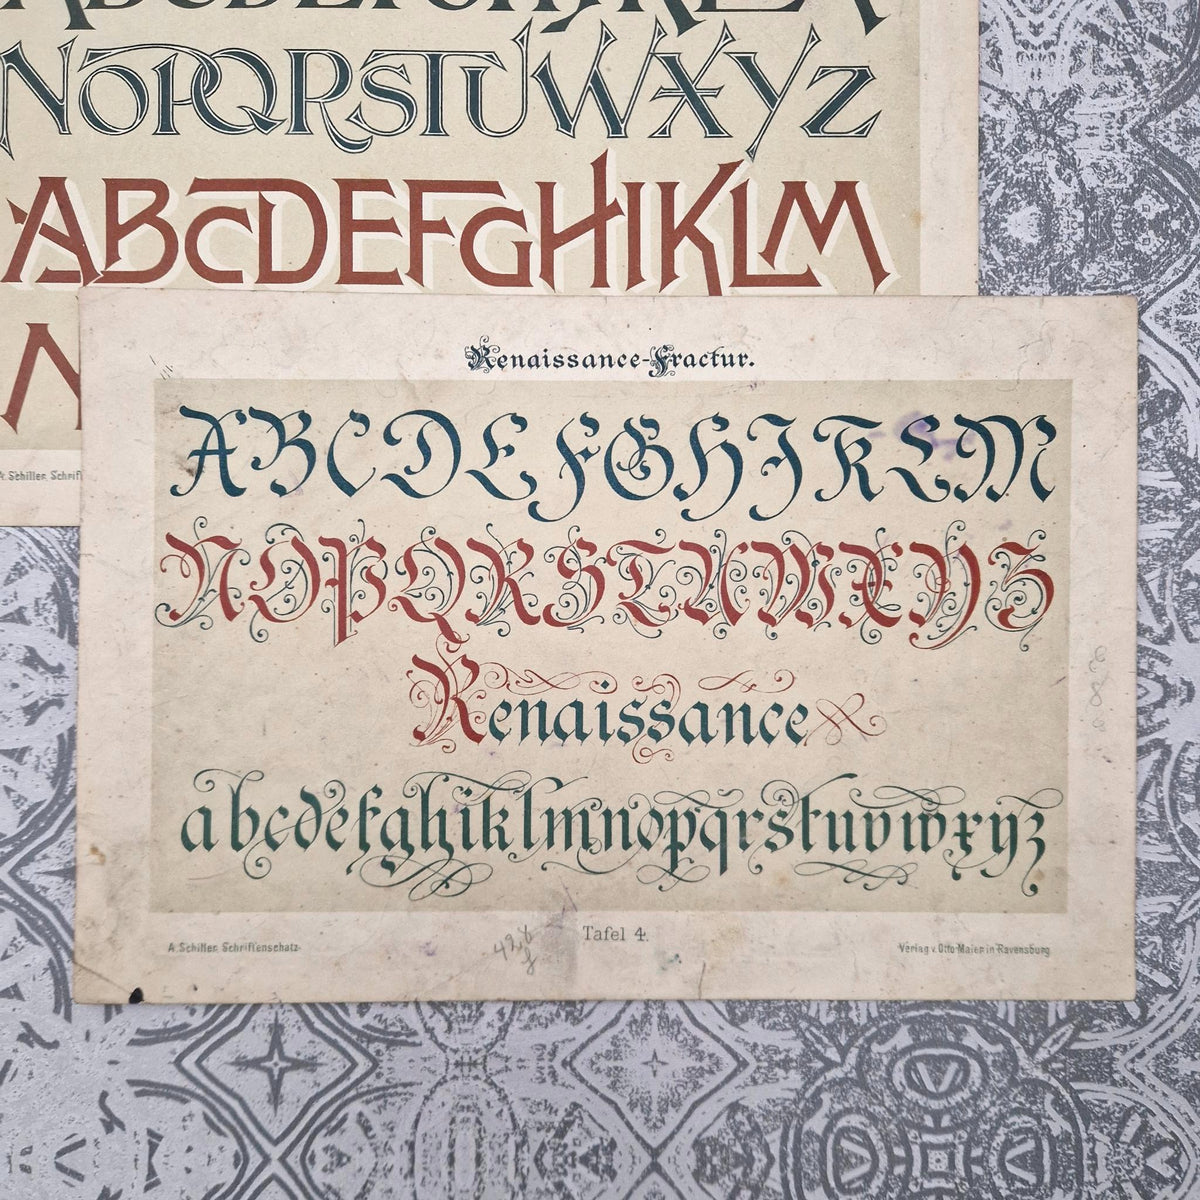 ABCDEFGHIJKLM
NOPQRSTUWXYZ
ABCDEFGHIKLM
N
A. Schiller, Schrif
Renaissance-Fractur.
ABCDEFGHIKLM
NOPQRSTUWXYZ
Renaissance
abcdefghiklmnopqrstuvwxyz
A. Schiller, Schriftenschatz.
Tafel 4.
Verlag v. Otto Maier in Ravensburg